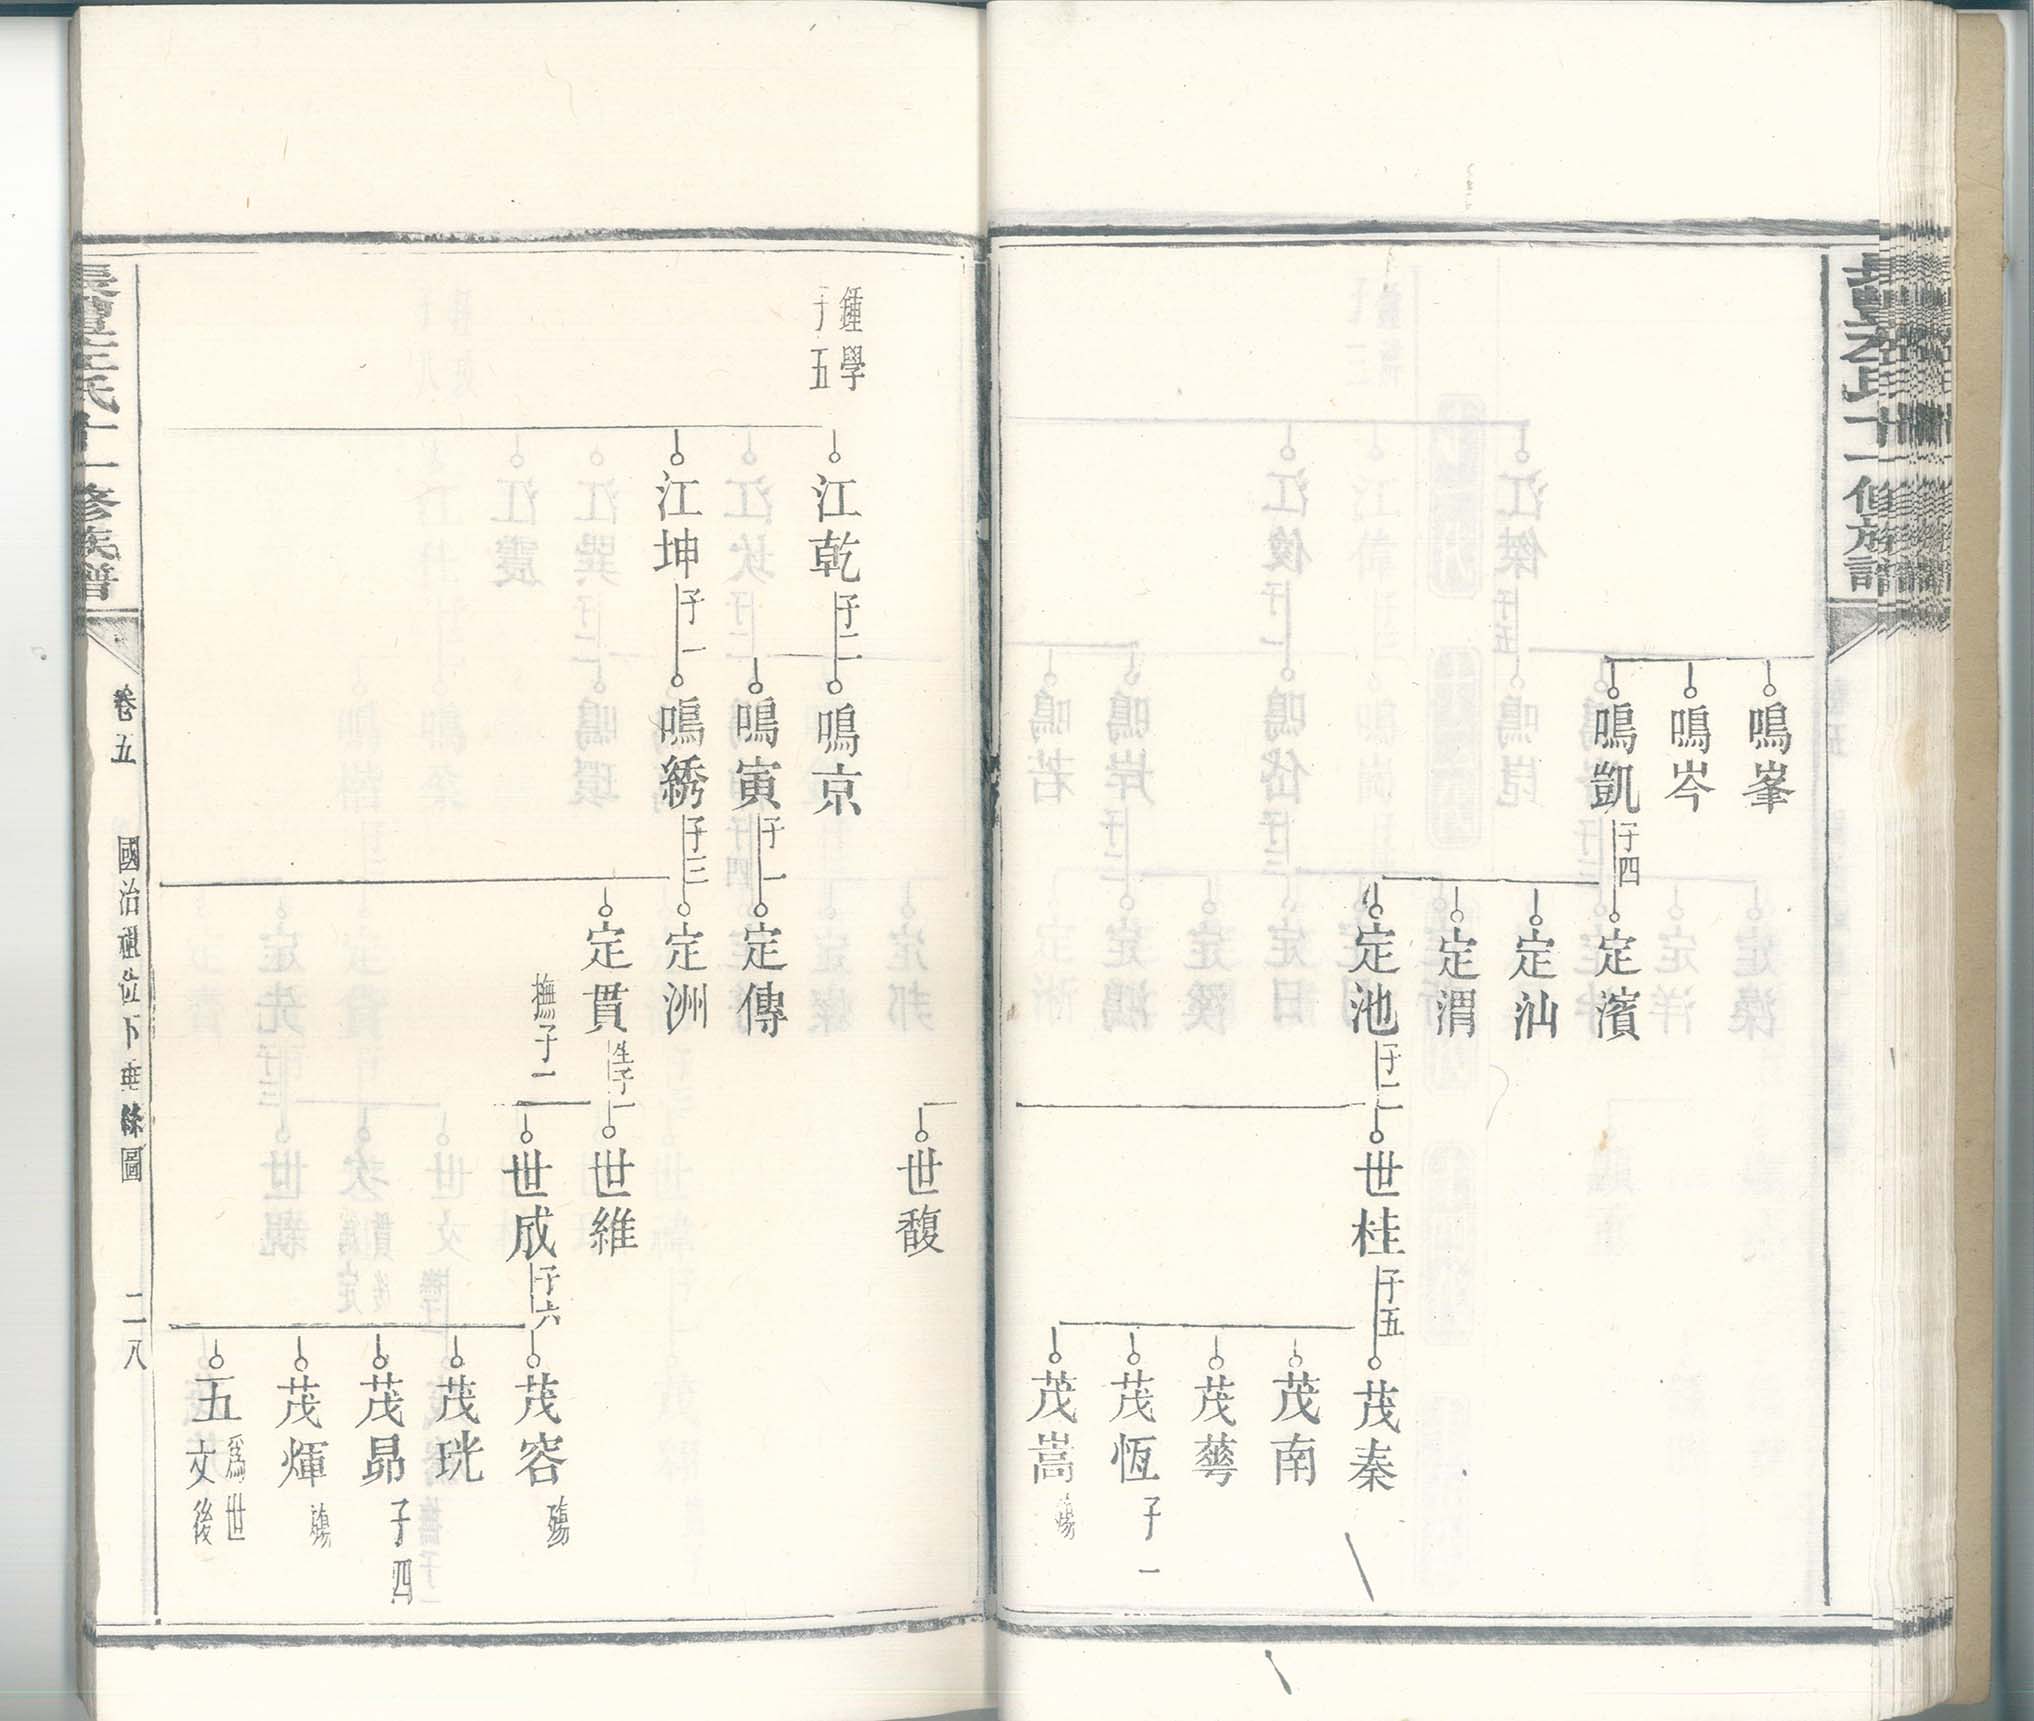 鳴峯
鳴岑
鳴凱 子四
定濱
定汕
定渭
定池 子二
世桂 子五
茂秦
茂南
茂蕚
茂恆 子一
茂嵩 殤
世馥
鍾學
子五
江乾 子二
江坤 子一
鳴京
鳴寅 子一
鳴綉 子三
定傳
定洲
定貫 生子一
撫子一
世維
世成 子六
茂容 殤
茂珖
茂昴 子四
茂煇 殤
五 為世
文後
氏十一修族譜
卷五
國治祖位下垂絲圖
二八
十一修族譜